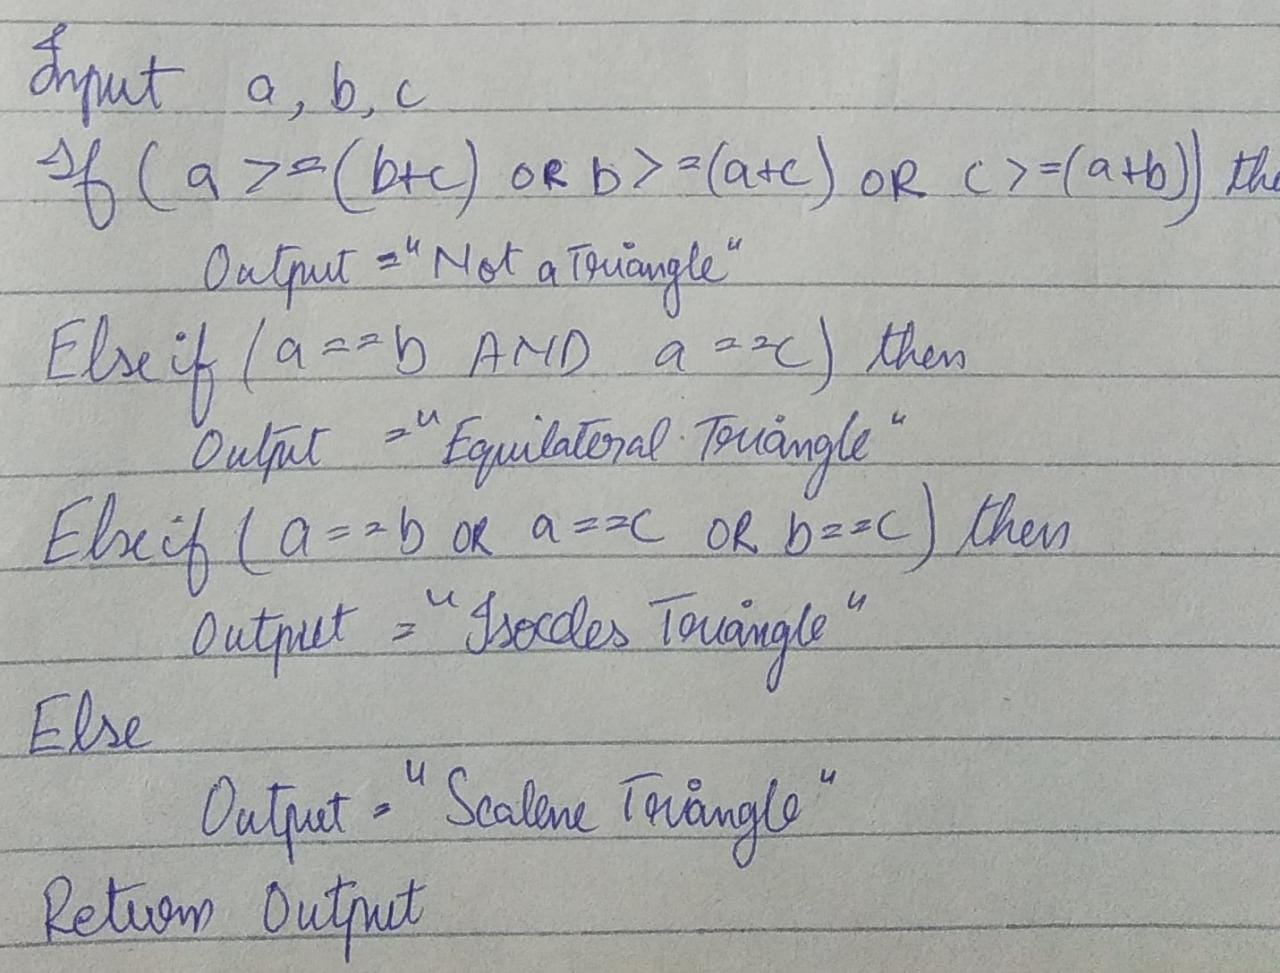 Input a, b, c
If (a >= (b+c) OR b >= (a+c) OR c >= (a+b)) the
Output = "Not a Triangle"
Else if (a == b AND a == c) then
Output = "Equilateral Triangle"
Else if (a == b OR a == c OR b == c) then
Output = "Isoceles Triangle"
Else
Output = "Scalene Triangle"
Return Output